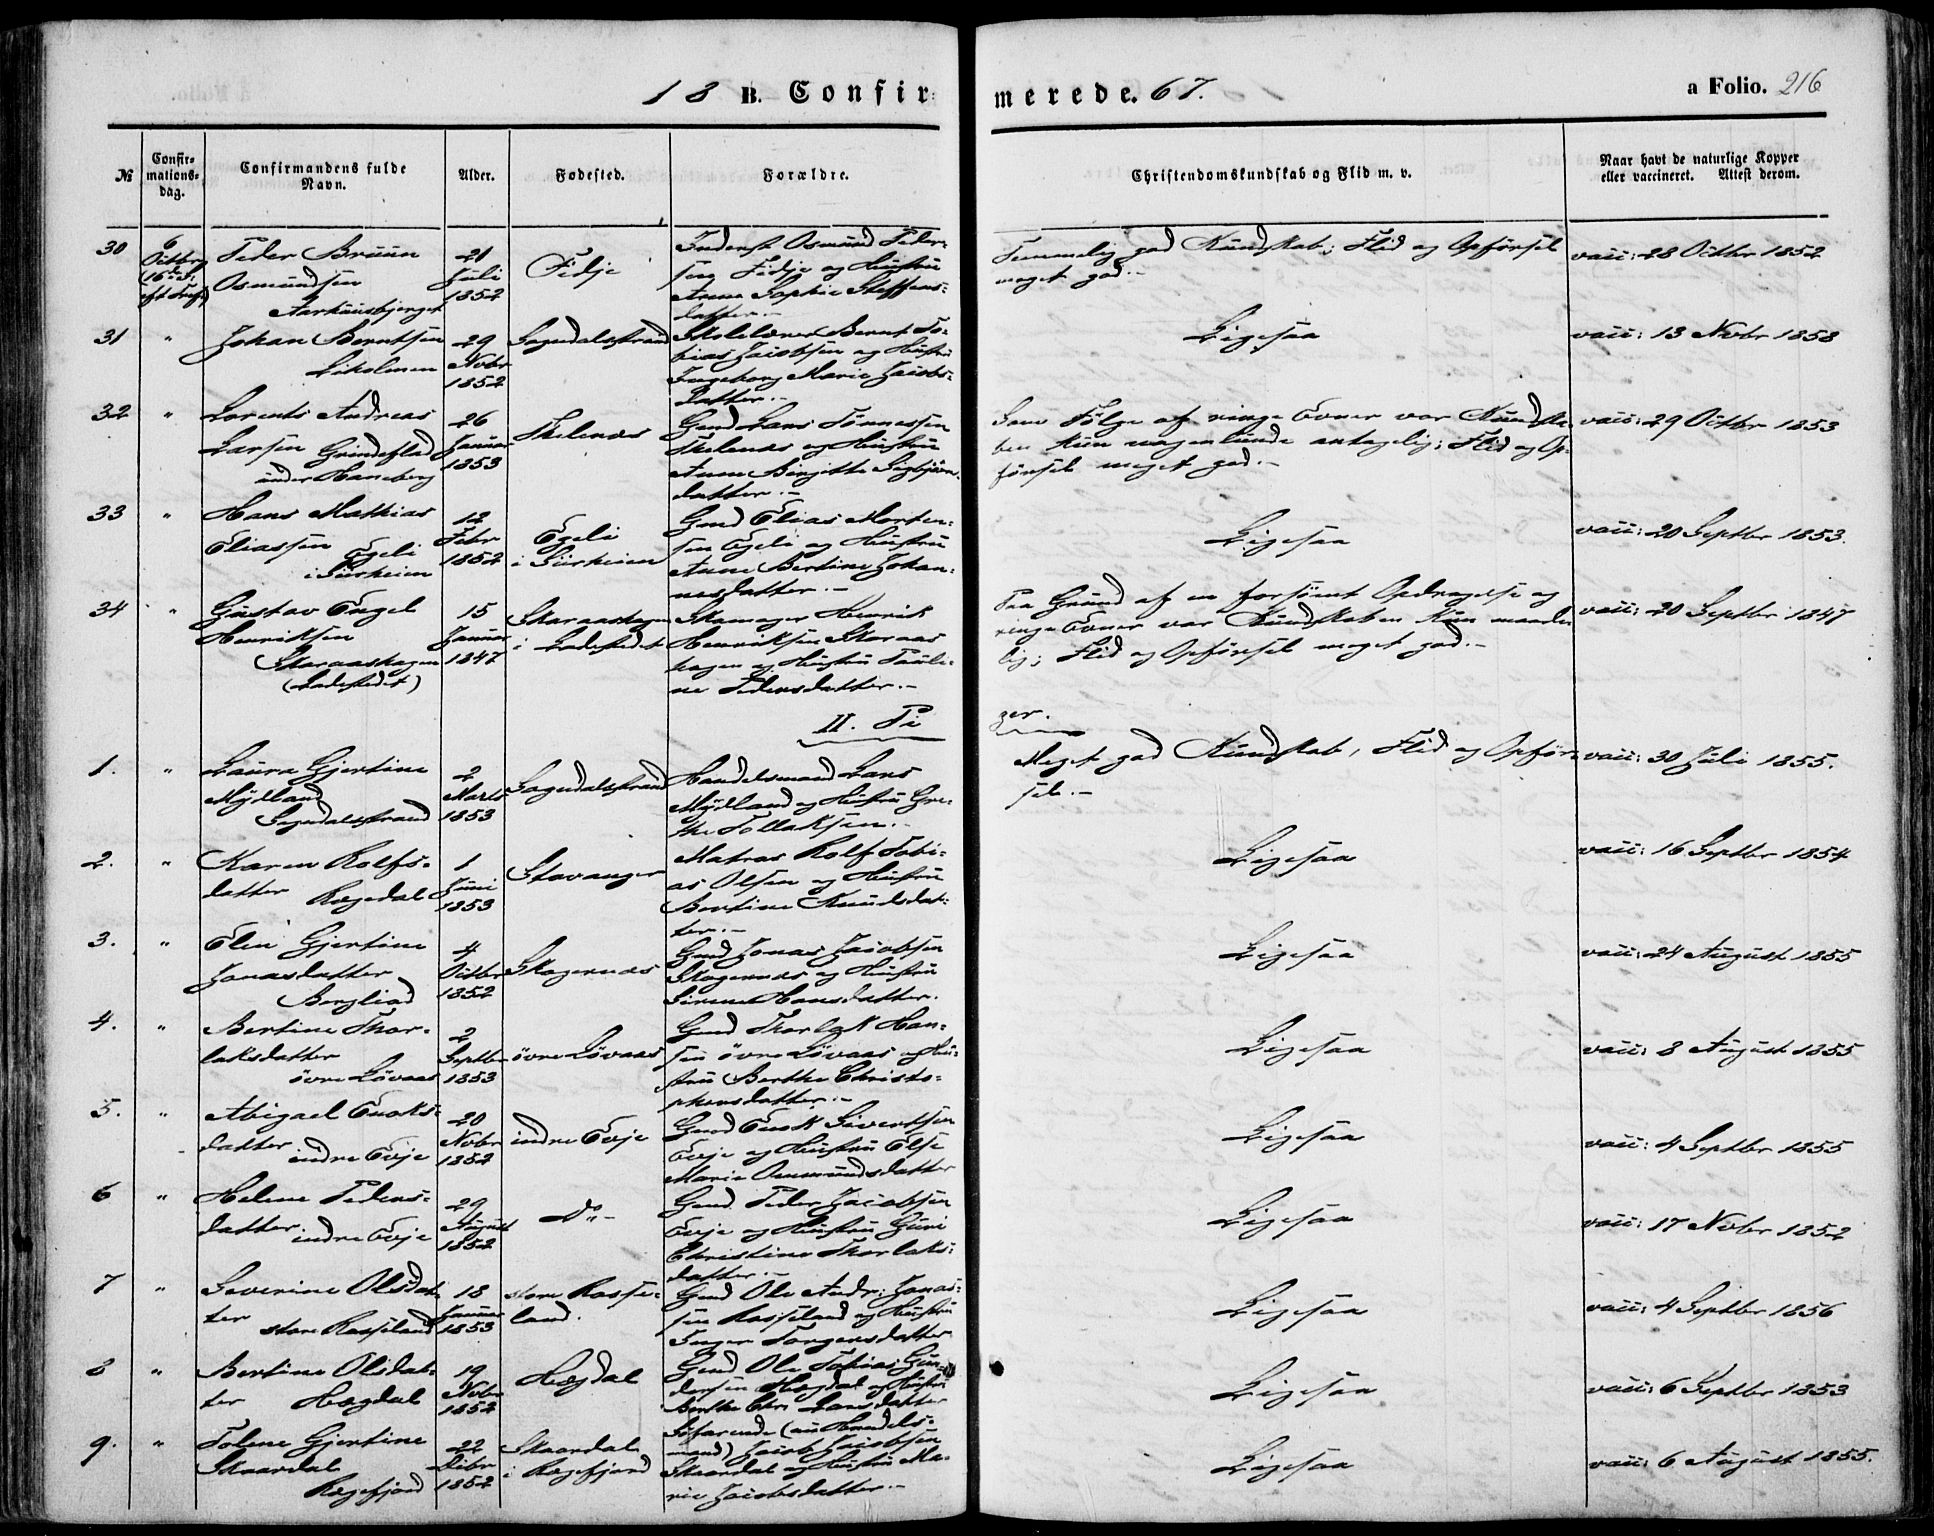 18 B. Confir=
merede. 67.
a Folio. 216
№
Confir=
mations=
dag.
Confirmandens fulde
Navn.
Alder.
Fødested.
Forældre.
Christendomskundskab og Flid m. v.
Naar havt de naturlige Kopper
eller vaccineret. Attest derom.
30
6
Octbr
(16 d S:
eft Tref)
Peder Bruun
Osmundsen
Aarhuusbjerget
21
Juli
1852
Fidje
Inderst Osmund Peder=
sen Fidje og Hustru
Anna Sophie Steffens=
datter.-
Temmelig god Kundskab; Flid og Opførsel
meget god.-
vacc: 28 Octbr 1852
31
"
Johan Berntsen
Liholmen
29
Novbr
1852
Sogndalstrand
Skolelærer Bernt To=
bias Jacobsen og Hustru
Ingeborg Marie Jacobs=
datter.-
Ligesaa
vacc: 13 Novbr 1858
32
"
Lorents Andreas
Larsen Grindeflad
under Haneberg
26
Januar
1853
Skelenæs
Gmd Lars Tønnessen
Skelenæs og Hustru
Anne Birgitte Sigbjørns=
datter.-
Som Følge af ringe Evner var Kundska=
ben kun nogenlunde antagelig; Flid og Op=
førsel meget god.-
vacc: 29 Octbr 1853
33
"
Hans Mathias
Eliassen
Egeli
i Surheim
12
Febr
1852
Egeli
i Surheien
Gmd Elias Morten=
sen Egeli og Hustru
Anne Bertine Johan=
nesdatter.-
Ligesaa
vacc: 20 Septbr 1853.
34
"
Gustav Engel
Henriksen
Skaraashagen
(Ladestedet)
15
Januar
1847
Skaraashagen
i Ladestedet
Skomager Henrik
Henriksen Skaraas
hagen og Hustru Pauli=
ne Pedersdatter.-
Paa Grund af en forsømt Opdragelse og
ringe Evner var Kundskaben kun maade
lig; Flid og Opførsel meget god.-
vacc: 20 Septbr 1847
II. Pi
ger.
1.
"
Laura Gjertine
Mydland
Sogndalstrand
2
Marts
1853
Sogndalstrand
Handelsmand Lars
Mydland og Hustru Gre=
the Tollaksen.-
Meget god Kundskab, Flid og Opfør=
sel.-
vacc: 30 Juli 1855.
2.
"
Karen Rolfs=
datter Rægedal
1
Juni
1853
Stavanger
Matros Rolf Tobi=
as Olsen og Hustru
Bertine Knudsdat=
ter.-
Ligesaa
vacc: 16 Septbr 1854
3.
"
Elen Gjertine
Jonasdatter
Bergliad
4
Octbr
1852
Skogernæs
Gmd Jonas Jacobsen
Skogernæs og Hustru
Sirene Hansdatter.
Ligesaa
vacc: 24 August 1855
4.
"
Bertine Thor=
laksdatter
øvre Løvaas
2
Septbr
1853
øvre Løvaas
Gmd Thorlak Han=
sen øvre Løvaas og Hu=
stru Berthe Christo=
phersdatter.-
Ligesaa
vacc: 8 August 1855
5.
"
Abigael Enoks=
datter
indre Evje
20
Novbr
1852
indre Evje
Gmd Enok Sivertsen
Evje og Hustru Else
Marie Osmundsdatter
Ligesaa
vacc: 4 Septbr 1855
6
"
Helene Peders=
datter
indre Evje
29
August
1852
Do-
Gmd Peder Jacobsen
Evje og Hustru Guri
Christine Thorlaks=
datter.-
Ligesaa
vacc: 17 Novbr 1852
7
"
Severine Olsdat=
ter
store Rosseland
18
Januar
1853
store Rosse=
land.
Gmd Ole Andr: Jonas=
sen Rosseland og Hustru
Inger Torgersdatter
Ligesaa
vacc: 4 Septbr 1856
8
"
Bertine Olsdat=
ter Hægdal
19
Novbr
1852
Hægdal
Gmd Ole Tobias Gun=
dersen Hægdal og Hustru
Berthe Chr: Larsdatter
Ligesaa
vacc: 6 Septbr 1853
9.
"
Tolene Gjertine
Skaardal
Rægefjord
22
Decbr
1852
Skaardal
i Rægefjord
Søfarende (nu Handels=
mand) Jacob Jacobsen
Skaardal og Hustru Ma=
rie Jacobsdatter.-
Ligesaa
vacc: 6 August 1855.